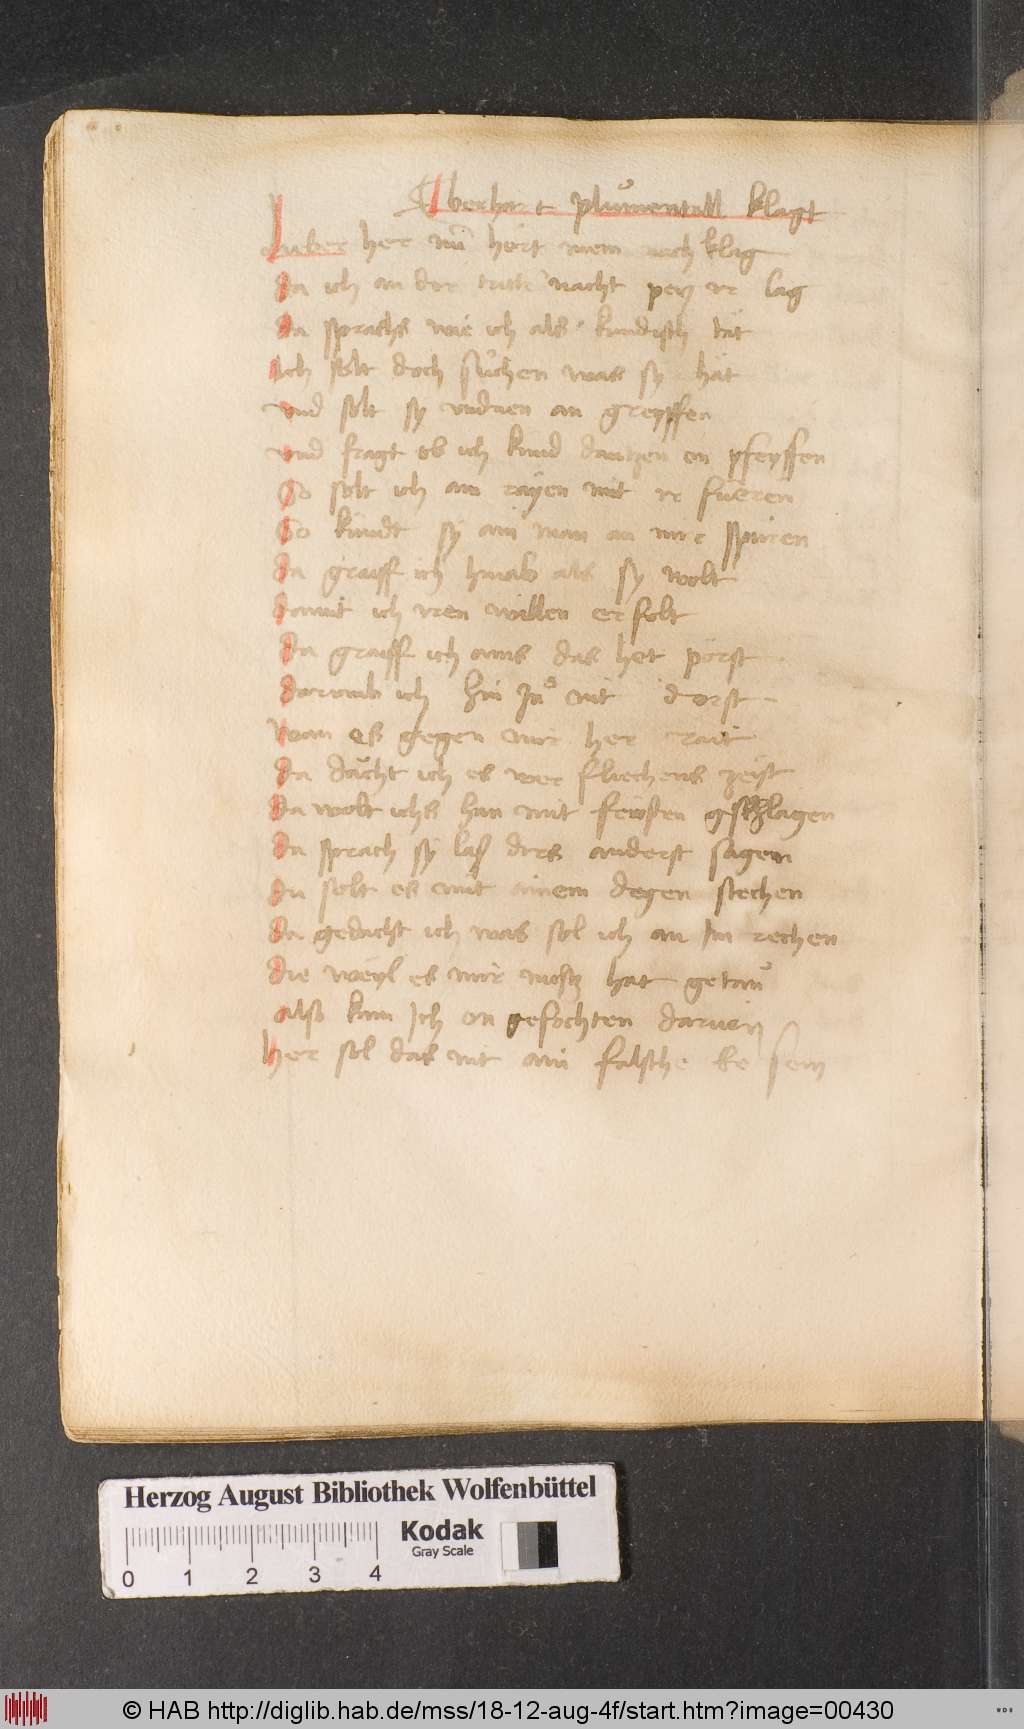 Eberhart plůmentall klagt
Lieber her nū hört mein auch klag
da ich an der dritt nacht pey ir lag
da sprachs wie ich als kindisch tät
Ich solt doch sůchen was sy hät
vnd solt sy vndnen an greyffen
vnd fragt ob ich kund dantzen on pfeyffen
So solt ich ain rayen mit ir füeren
So kündt sy ain man an mir spüren
da graiff ich hinab als sy wolt
damit ich iren willen erfolt
da graiff ich ains das het pörst
darumb ich hin zů nit dorst
wan es gegen mir her rait
da dächt ich es wer fliechens zeyt
da wolt ichs han mit feusten geschlagen
da sprach sy las dirs anderst sagen
du solt es mit ainem degen stechen
da gedacht ich was sol ich an Im rechen
die weyl es mir nichtz hat getan
also kam Ich on gefochten daruon
her sol das nit ain falsche ee sein
Herzog August Bibliothek Wolfenbüttel
Kodak
Gray Scale
0 1 2 3 4
© HAB http://diglib.hab.de/mss/18-12-aug-4f/start.htm?image=00430